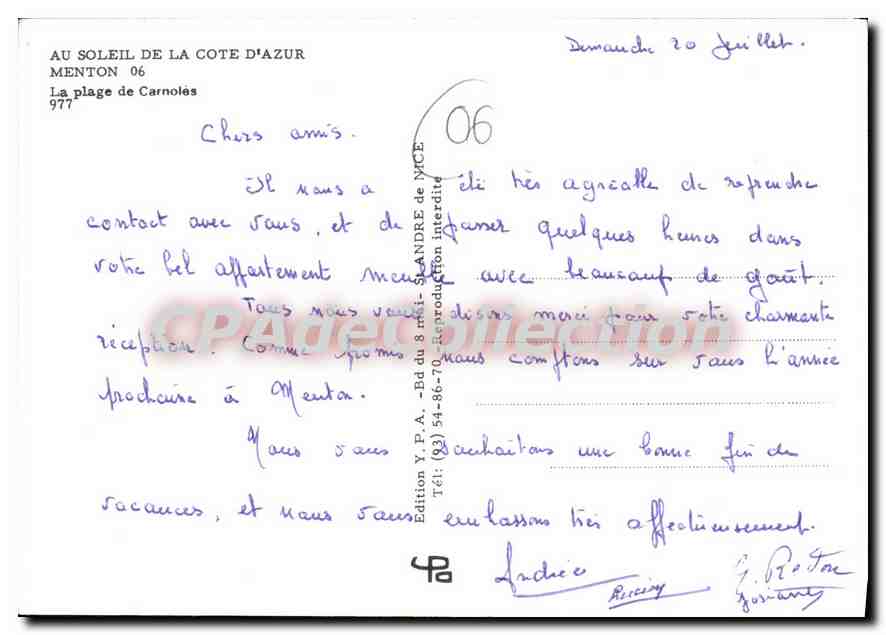 AU SOLEIL DE LA COTE D'AZUR
MENTON 06
La plage de Carnolès
977
Dimanche 20 Juillet.
06
Chers amis.
Il nous a été très agréable de reprendre
contact avec vous, et de passer quelques heures dans
votre bel appartement meublé avec beaucoup de goût.
Tous nous vous disons merci pour votre charmante
réception. Comme promis nous comptons sur vous l'année
prochaine à Menton.
Nous vous souhaitons une bonne fin de
vacances, et nous vous embrassons très affectueusement.
Andrée
Josiane
Edition Y.P.A. -Bd du 8 mai- St ANDRE de NICE
Tél: (93) 54-86-70 -Reproduction interdite
CPAdeCollection